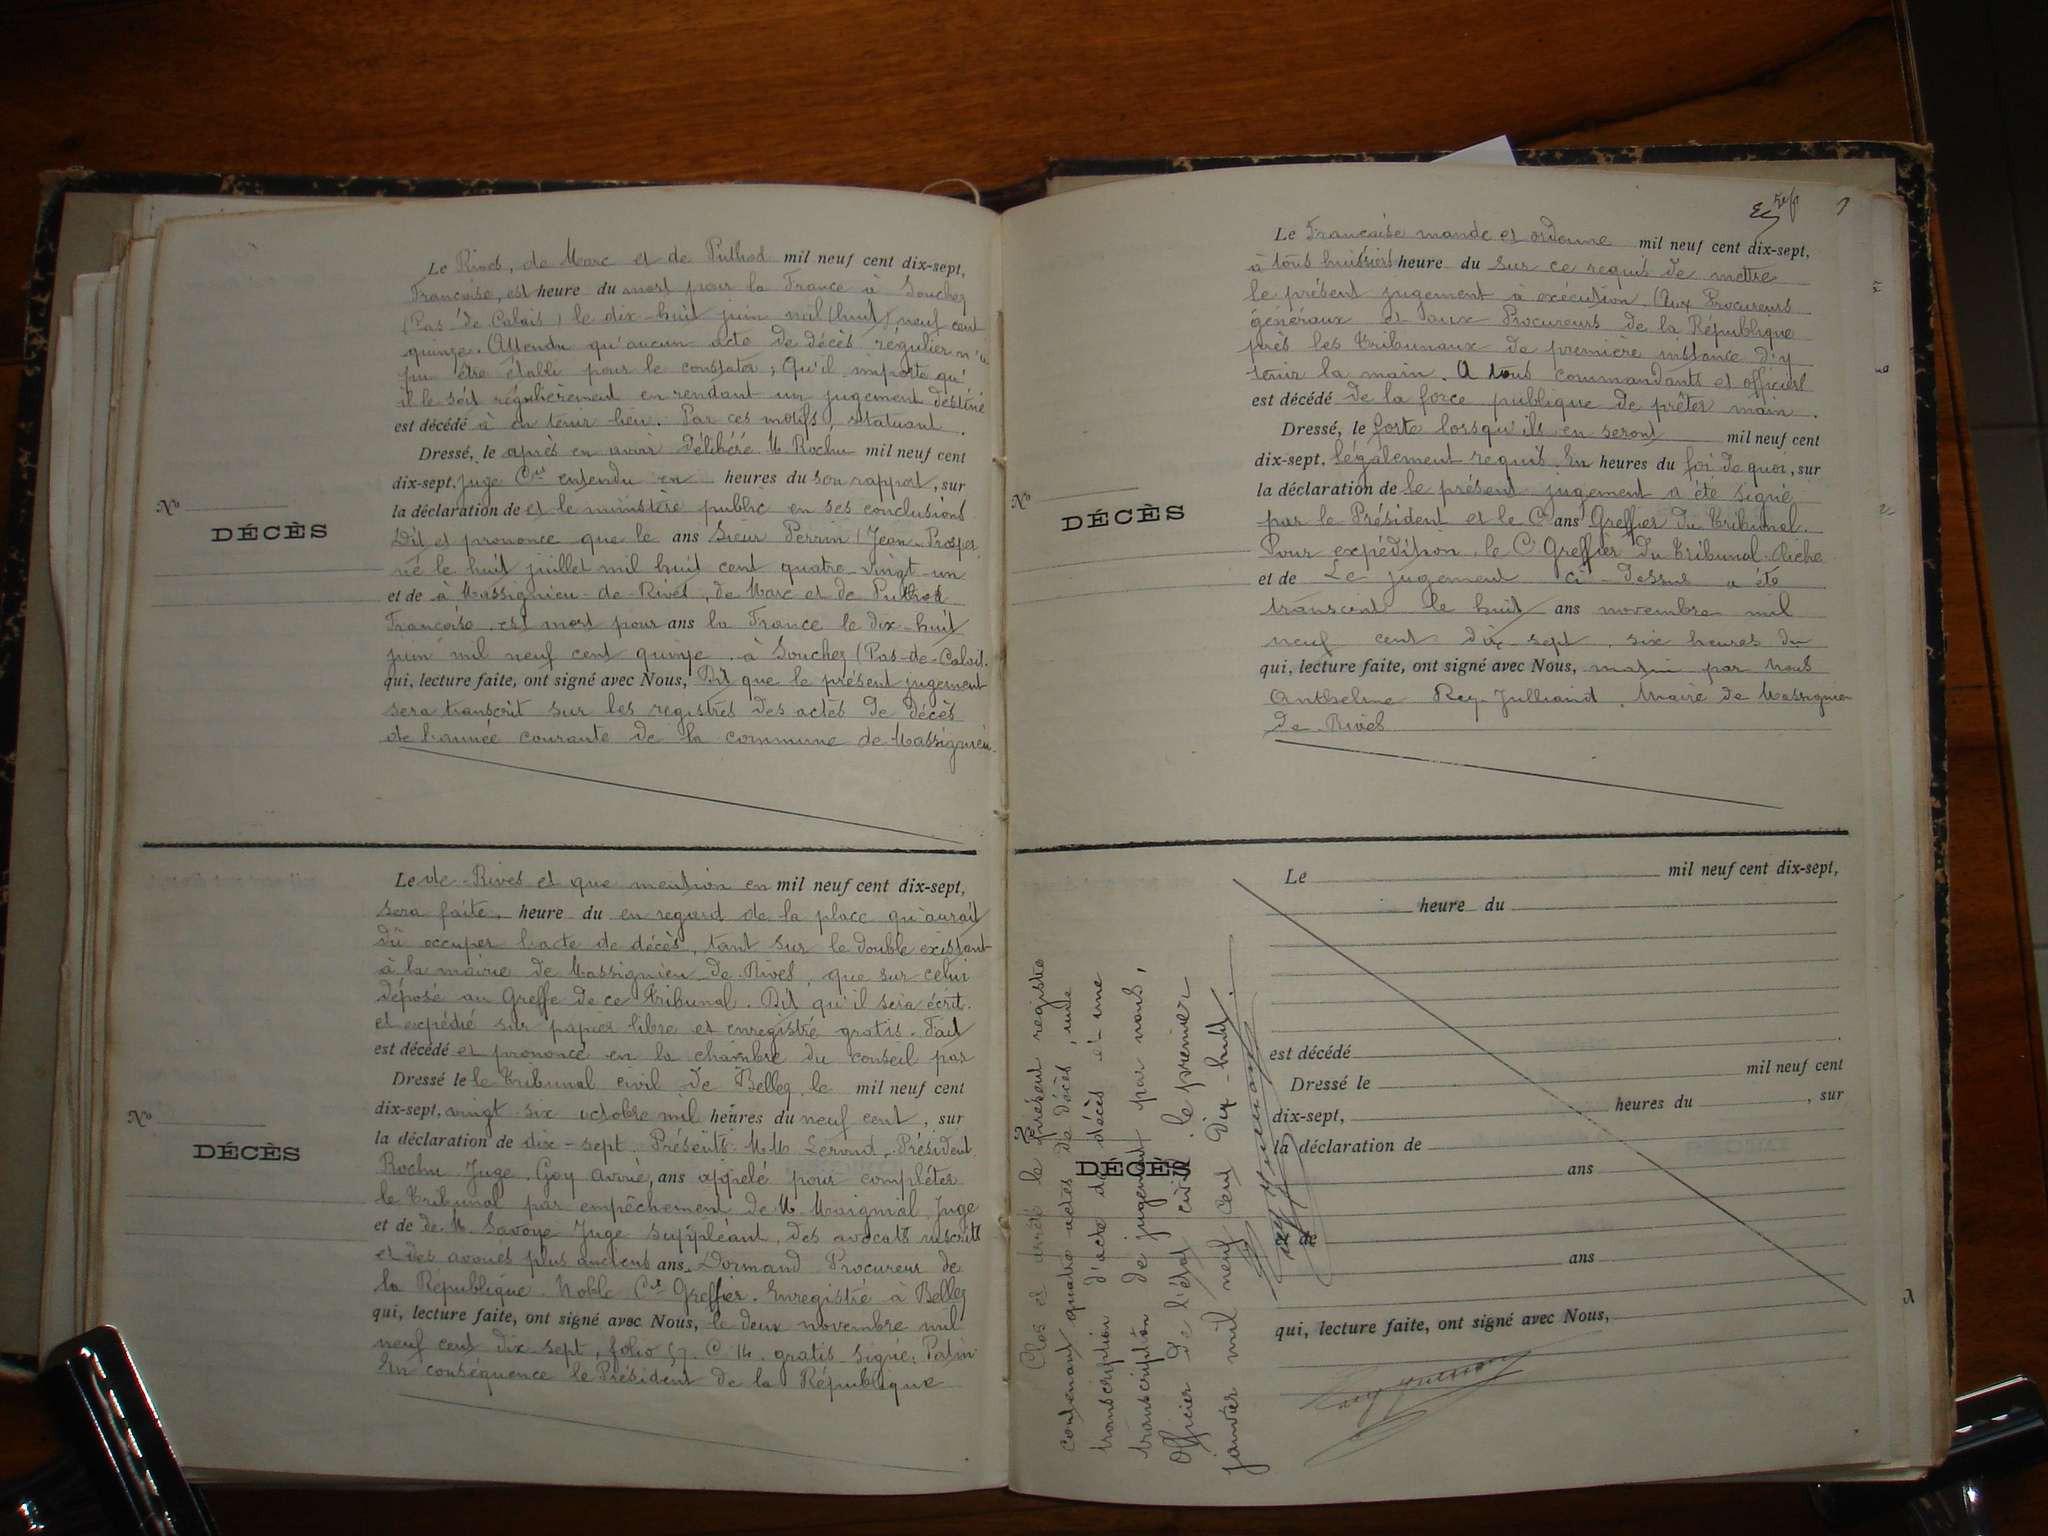 Le Rives, de Marc et de Puthod mil neuf cent dix-sept,
Françoise, est heure du mort pour la France à Souchez
(Pas-de-Calais) le dix-huit juin mil (huit) neuf cent
quinze. Attendu qu'aucun acte de décès régulier n'a
pu être établi pour le constater; Qu'il importe qu'
il le soit régulièrement en rendant un jugement destiné
est décédé à en tenir lieu. Par ces motifs, statuant
Dressé, le après en avoir délibéré M. Rochu mil neuf cent
dix-sept, juge entendu en heures du son rapport, sur
la déclaration de et le ministère public en ses conclusions
Dit et prononce que le ans Sieur Perrin (Jean-Prosper
né le huit juillet mil huit cent quatre-vingt-un
et de à Massignieu-de-Rives, de Marc et de Puthod
Françoise est mort pour ans la France le dix-huit
juin mil neuf cent quinze à Souchez (Pas-de-Calais.
qui, lecture faite, ont signé avec Nous, Dit que le présent jugement
sera transcrit sur les registres des actes de décès
de l'année courante de la commune de Massignieu
No
DÉCÈS
Le de-Rives et que mention en mil neuf cent dix-sept,
sera faite, heure du en regard de la place qu'aurait
dû occuper l'acte de décès, tant sur le double existant
à la mairie de Massignieu de Rives, que sur celui
déposé au Greffe de ce Tribunal. Dit qu'il sera écrit
et expédié sur papier libre et enregistré gratis. Fait
est décédé et prononcé en la chambre du conseil par
Dressé le le Tribunal civil de Belley le mil neuf cent
dix-sept, vingt six octobre mil heures du neuf cent, sur
la déclaration de dix-sept. Présents M.M. Président
Rochu Juge. Goy avoué, ans appelé pour compléter
le Tribunal par empêchement de M. Juge
et de de M. Savoye Juge suppléant, des avocats inscrits
et des avoués plus anciens ans. Dormand Procureur de
la République Noble Cis Greffier. Enregistré à Belley
qui, lecture faite, ont signé avec Nous, le deux novembre mil
neuf cent dix sept, folio 57 C 14 gratis signé:
En conséquence le Président de la République
No
DÉCÈS
Le Française mande et ordonne mil neuf cent dix-sept,
à tous huissiers heure du sur ce requis de mettre
le présent jugement à exécution. Aux Procureurs
généraux et aux Procureurs de la République
près les Tribunaux de première instance d'y
tenir la main. A tous commandants et officiers
est décédé de la force publique de prêter main
Dressé, le forte lorsqu'ils en seront mil neuf cent
dix-sept, légalement requis. En heures du foi de quoi, sur
la déclaration de le présent jugement a été signé
par le Président et le Cis ans Greffier du Tribunal.
Pour expédition, le Cis Greffier du Tribunal
et de Le jugement ci-dessus a été
transcrit le huit ans novembre mil
neuf cent dix-sept, six heures du
qui, lecture faite, ont signé avec Nous, matin par Nous
Anthelme Rey-Julliand Maire de Massignieu
de Rives
No
DÉCÈS
Le mil neuf cent dix-sept,
heure du
est décédé
Dressé le mil neuf cent
dix-sept, heures du , sur
la déclaration de
ans
et de
ans
qui, lecture faite, ont signé avec Nous,
DÉCÈS
Clos et arrêté le présent registre
contenant quatre actes de décès, une
transcription d'acte de décès et une
transcription de jugement par nous,
Officier de l'état civil, le premier
janvier mil neuf cent dix-huit.